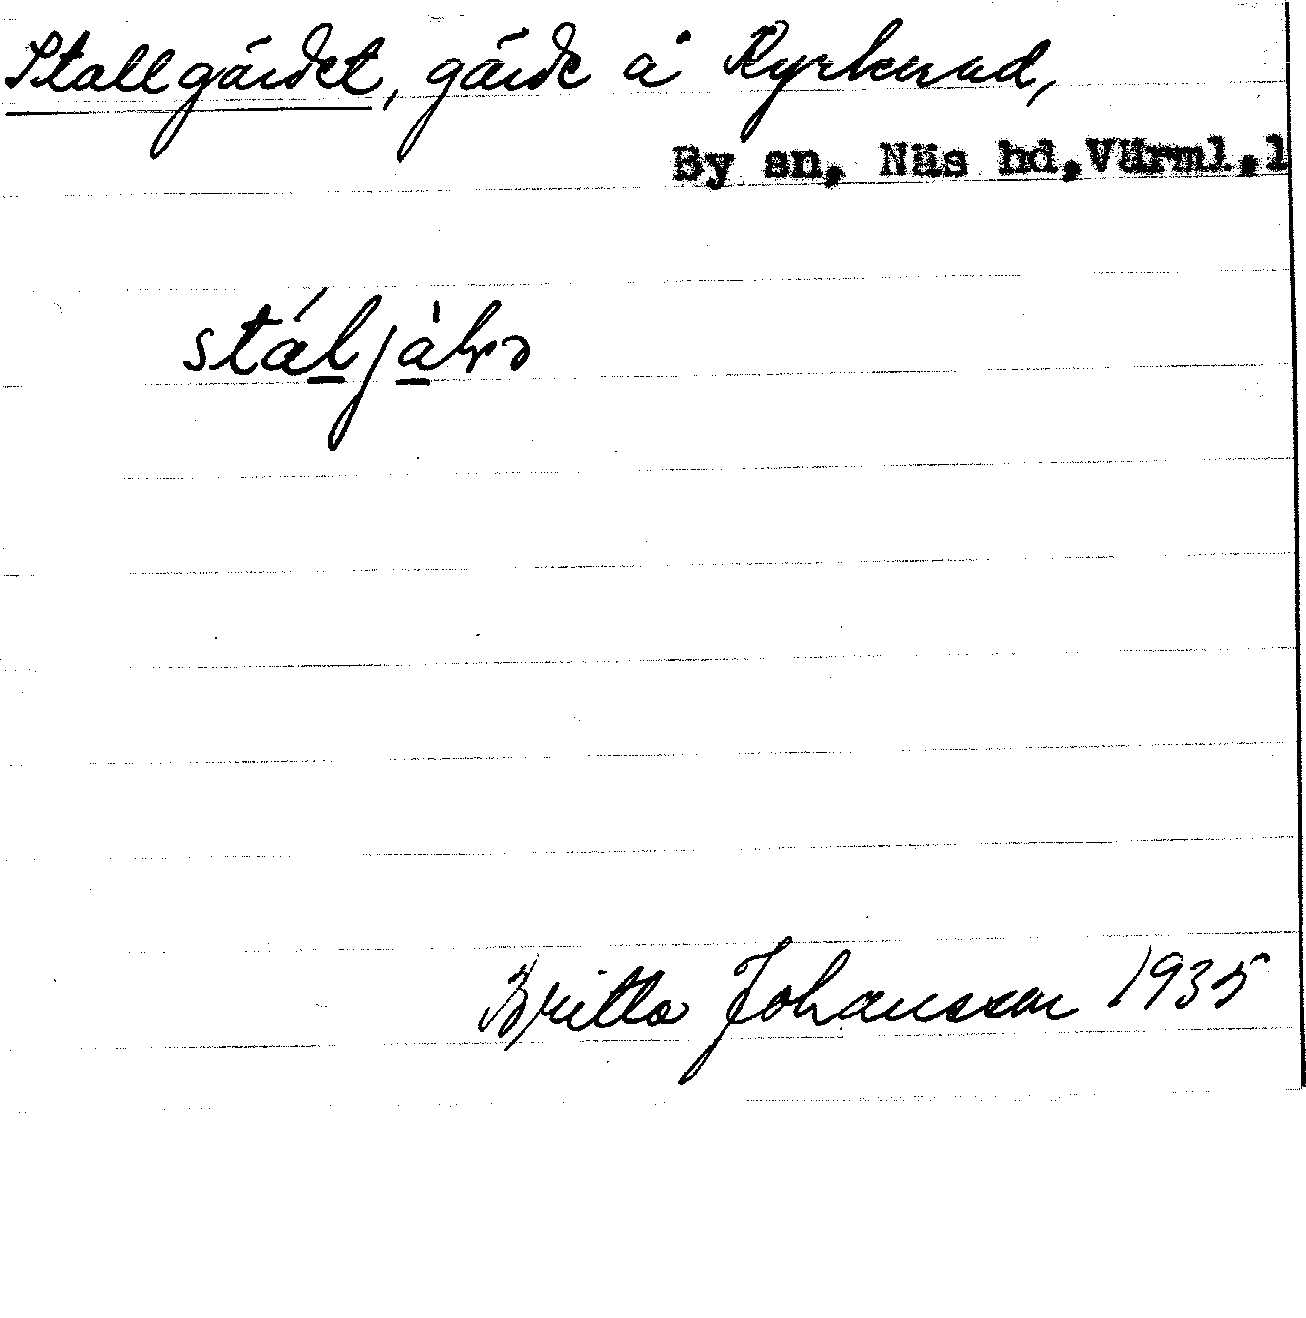 Stallgärdet, gärde å Kyrkerud,
By sn, Näs hd, Värml. l
Britta Johansson 1935